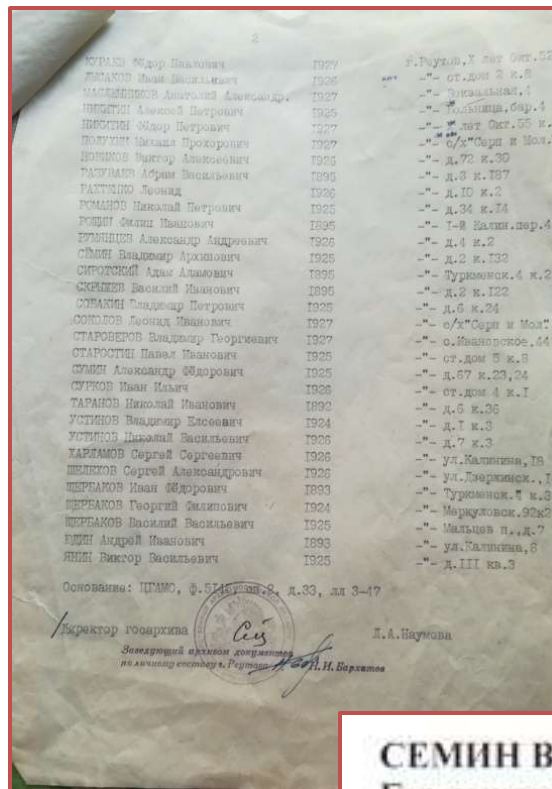 2
КУРАЕВ Фёдор Павлович 1927 г.Реутов,X лет Окт.52
ЛЫСАКОВ Иван Васильевич 1926 -"- ст.дом 2 к.8
МАСЛЕННИКОВ Анатолий Александр. 1927 -"- Вокзальная,4
НИКИТИН Алексей Петрович 1925 -"- Больница,бар.4
НИКИТИН Фёдор Петрович 1927 -"- лет Окт.55 к.
ПОЛУХИН Михаил Прохорович 1927 -"- с/х"Серп и Мол.
НОВИКОВ Виктор Алексеевич 1926 -"- д.72 к.30
РАЗУВАЕВ Абрам Васильевич 1895 -"- д.3 к.187
РАХТЕНКО Леонид 1926 -"- д.10 к.2
РОМАНОВ Николай Петрович 1925 -"- д.34 к.14
РОЩИН Филип Иванович 1895 -"- I-й Калин.пер.4
РУМЯНЦЕВ Александр Андреевич 1926 -"- д.4 к.2
СЁМИН Владимир Архипович 1925 -"- д.2 к.132
СИРОТСКИЙ Адам Адамович 1895 -"- Туркменск.4 к.2
СКРЫЖЕВ Василий Иванович 1895 -"- д.2 к.122
СОБАКИН Владимир Петрович 1925 -"- д.6 к.24
СОКОЛОВ Леонид Иванович 1927 -"- с/х"Серп и Мол"
СТАРОВЕРОВ Владимир Георгиевич 1927 -"- с.Ивановское,44
СТАРОСТИН Павел Иванович 1925 -"- ст.дом 5 к.8
СУМИН Александр Фёдорович 1925 -"- д.67 к.23,24
СУРКОВ Иван Ильич 1926 -"- ст.дом 4 к.I
ТАРАНОВ Николай Иванович 1892 -"- д.6 к.36
УСТИНОВ Владимир Елсеевич 1924 -"- д.I к.3
УСТИНОВ Николай Васильевич 1926 -"- д.7 к.3
ХАРЛАМОВ Сергей Сергеевич 1926 -"- ул.Калинина,18
ШЕЛЕХОВ Сергей Александрович 1926 -"- ул.Дзержинск.,I
ЩЕРБАКОВ Иван Фёдорович 1893 -"- Туркменск. к.3
ЩЕРБАКОВ Георгий Филипович 1924 -"- Меркуловск.92к2
ЩЕРБАКОВ Василий Васильевич 1925 -"- Мальцев п.,д.7
ЮДИН Андрей Иванович 1893 -"- ул.Калинина,8
ЯНИН Виктор Васильевич 1925 -"- д.III кв.3
Основание: ЦГАМО, оп.2, д.33, лл 3-47
Директор госархива Л.А.Наумова
Заведующий архивом документов
по личному составу г. Реутова Н.И. Бархатов
СЕМИН В